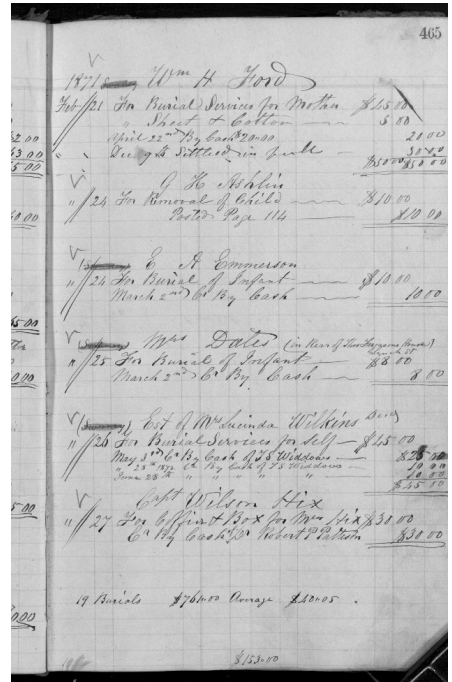 465
1871 Wm H Ford
Feb 21 For Burial Services for Mother $45.00
" Sheet & Cotton 5 00
April 22nd By Cash $20.00 20 00
" " Dec 9th Settled in full 30 00
$50 00 $50 00
G H Ashlin
" 24 For Removal of Child $10.00
Posted Page 114 $10.00
E A Emmerson
" 24 For Burial of Infant $10.00
March 2nd Cr By Cash 10 00
Mrs Dates (in Rear of House)
" 25 For Burial of Infant $8 00
March 2nd Cr By Cash 8 00
Est of Mrs Lucinda Wilkins Decd
" 26 For Burial Services for Self $45.00
May 3rd Cr By Cash of T S Widdows $25 00
" 25th 1872 Cr By Cash of T S Widdows 10 00
June 28th " " " " " 10 00
$45 00
Capt Wilson Hix
" 27 For Coffin & Box for Mrs Hix $30.00
Cr By Cash pr Robert P Pattison $30.00
19 Burials $761.00 Average $40.05.
$153.00